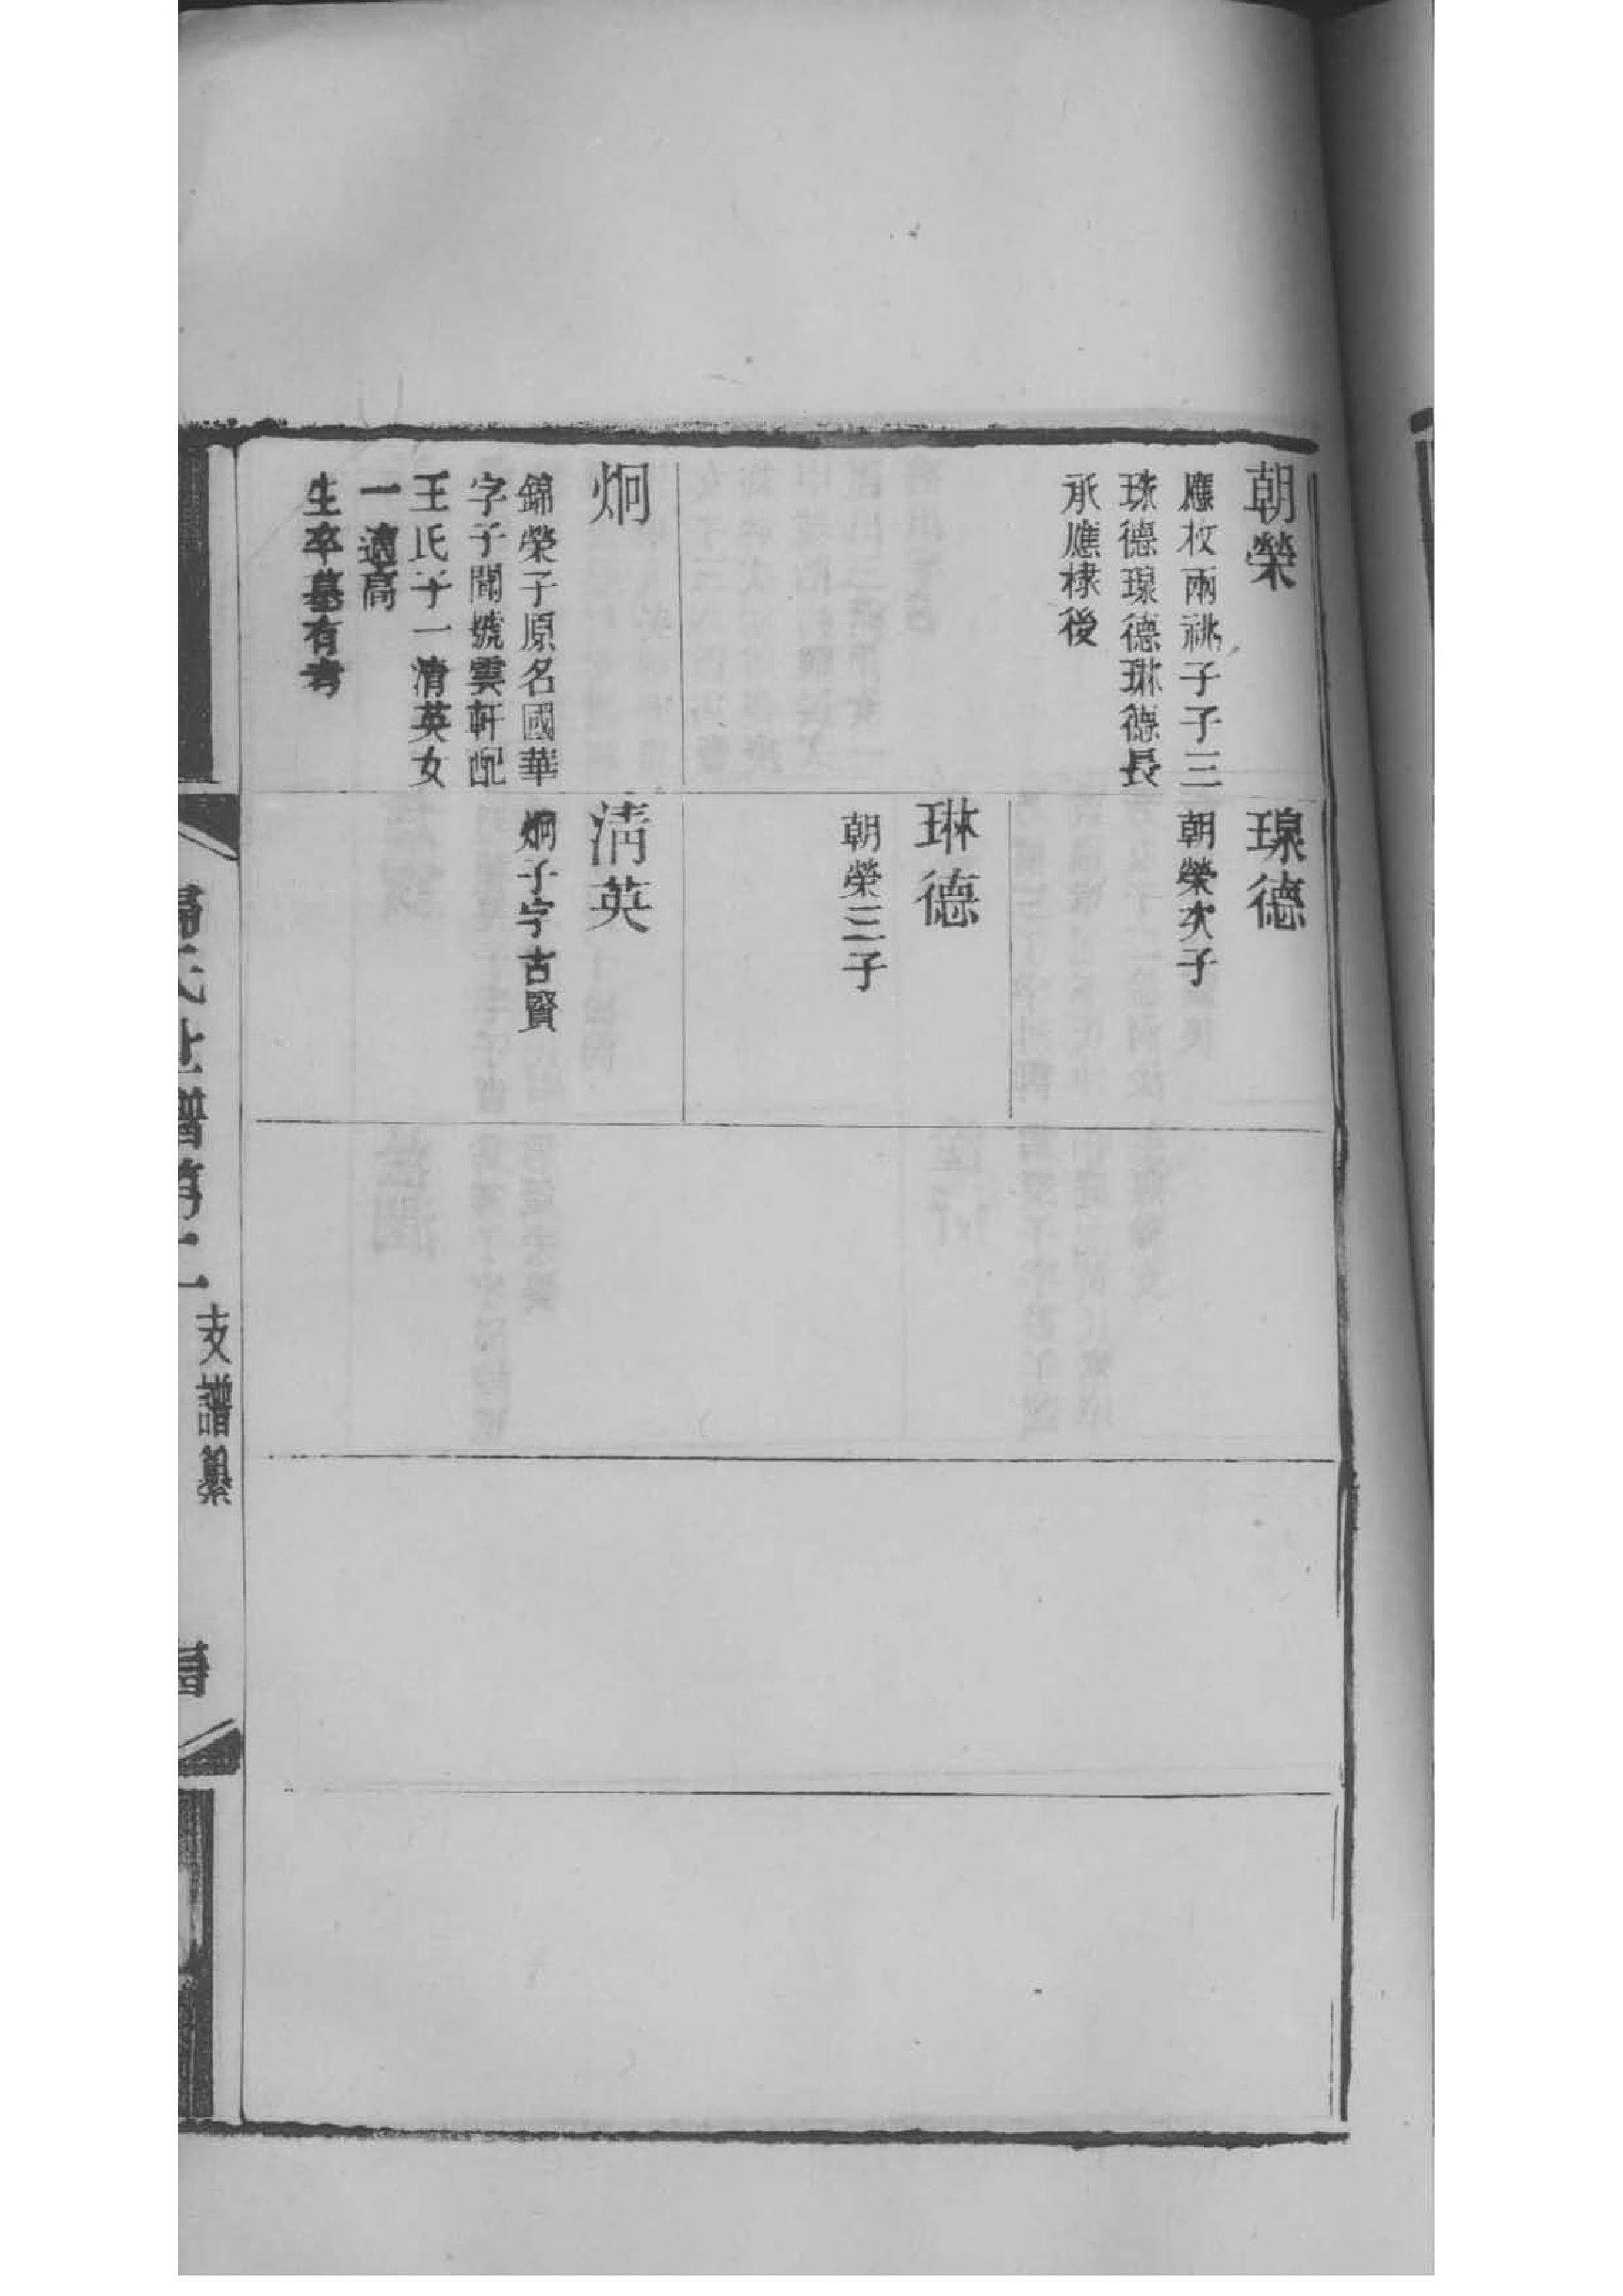 朝榮
應枚兩祧子子三
珠德瑔德琳德長
承應棣後
炯
錦榮子原名國華
字子聞號雲軒配
王氏子一清英女
一適高
生卒墓有考
瑔德
朝榮次子
琳德
朝榮三子
清英
炯子字古賢
氏世譜第二
支譜纂